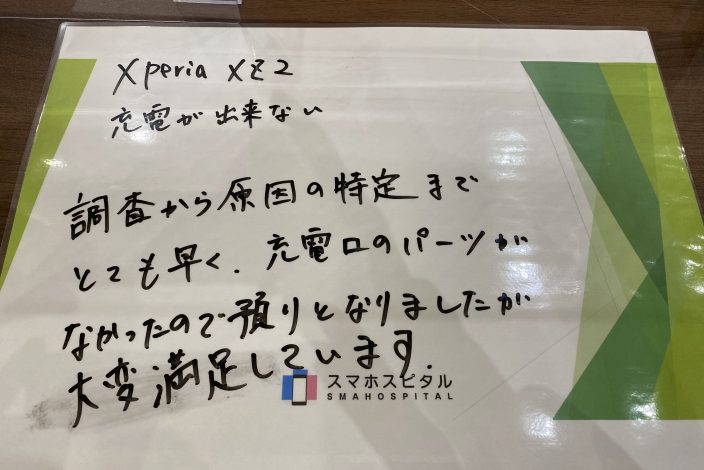 Xperia XZ2
充電が出来ない
調査から原因の特定まで
とても早く、充電口のパーツが
なかったので預りとなりましたが
大変満足しています.
スマホスピタル
SMAHOSPITAL